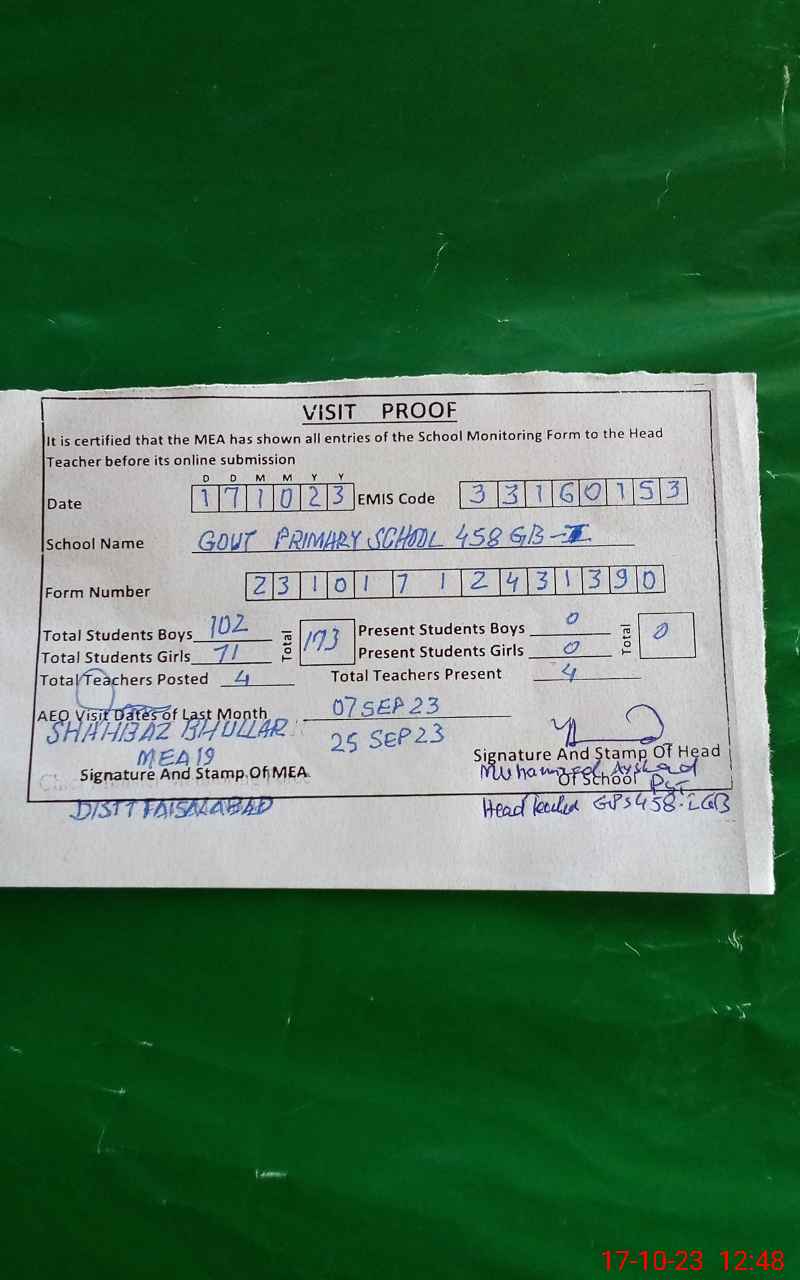 VISIT PROOF
It is certified that the MEA has shown all entries of the School Monitoring Form to the Head
Teacher before its online submission
D D M M Y Y
Date 171023 EMIS Code 33160153
School Name GOVT PRIMARY SCHOOL 458 GB-I
Form Number 23101712431390
Total Students Boys 102 Total 173 Present Students Boys 0 Total 0
Total Students Girls 71 Present Students Girls 0
Total Teachers Posted 4 Total Teachers Present 4
AEO Visit Dates of Last Month 07 SEP 23
25 SEP 23
SHAHBAZ BHULLAR
MEA 19
Signature And Stamp Of MEA.
DISTT FAISALABAD
Signature And Stamp Of Head
Of School
Muhammad Arshad
PST
Head Teacher GPS 458-I GB
17-10-23 12:48